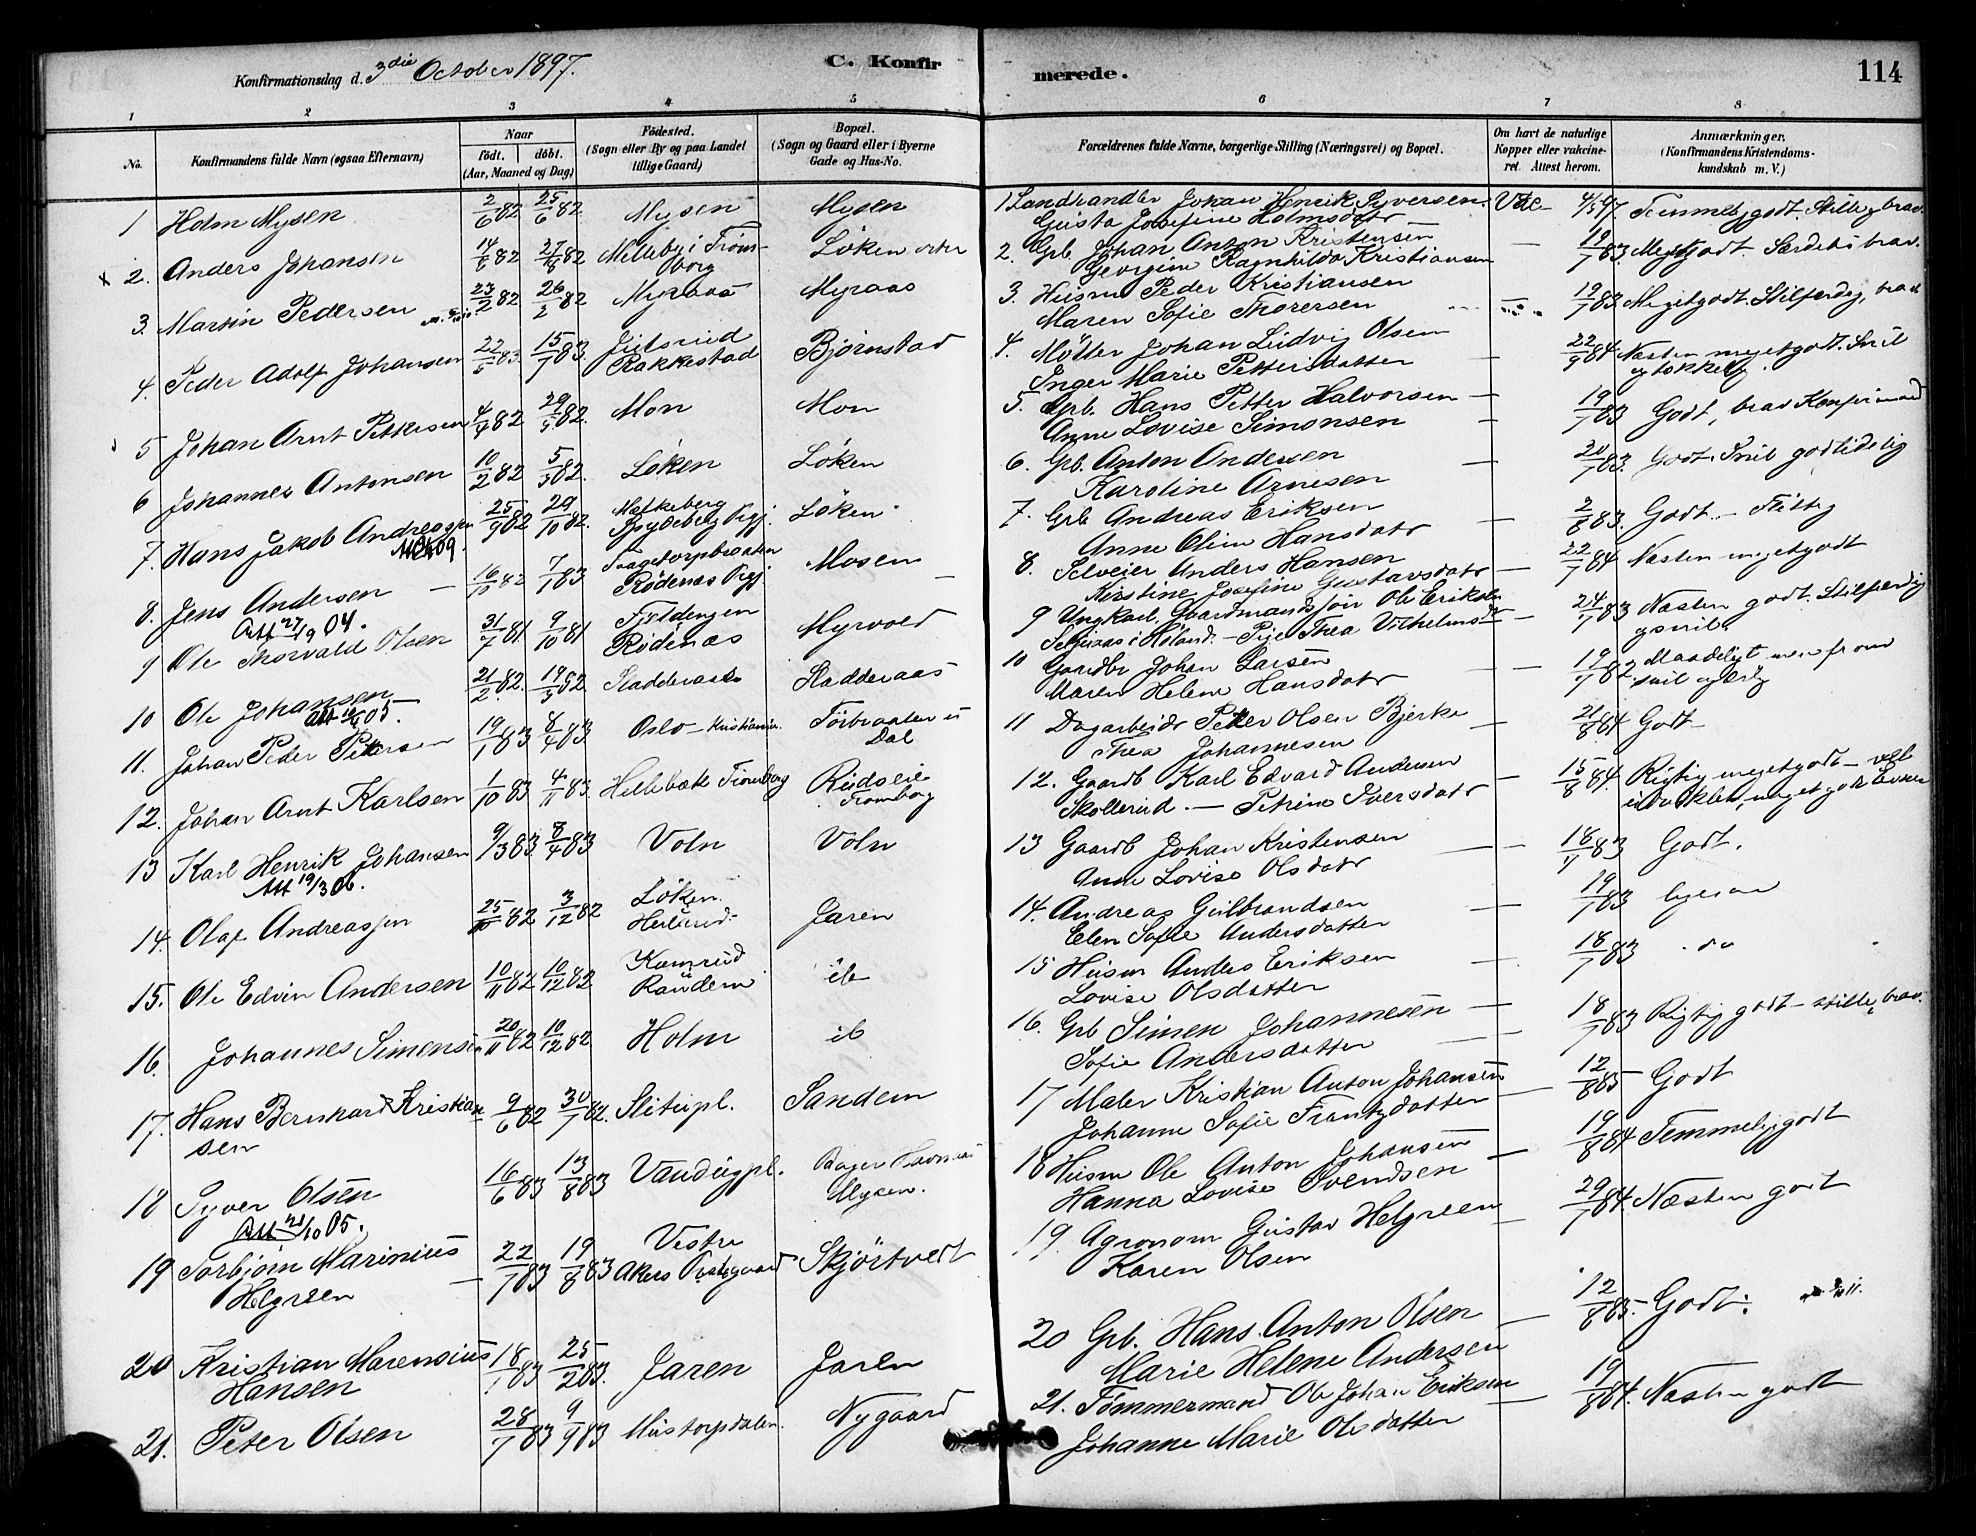 Konfirmationsdag d. 3die October 1897.
C. Konfirmerede.
114
1 2 3 4 5 6 7 8
No.
Konfirmandens fulde Navn (ogsaa Efternavn)
Naar
födt. döbt.
(Aar, Maaned og Dag)
Födested.
(Sogn eller By og paa Landet
tillige Gaard)
Bopæl.
(Sogn og Gaard eller i Byerne
Gade og Hus-No.
Forældrenes fulde Navne, borgerlige Stilling (Næringsvei) og Bopæl.
Om havt de naturlige
Kopper eller vakcine-
ret. Attest herom.
Anmærkninger.
(Konfirmandens Kristendoms-
kundskab m. V.)
1 Holm Mysen 2/6 82 25/6 82 Mysen Mysen
1 Landhandler Johan Henrik Syversen Vac 4/5 97 Temmelig godt. Stille, brav
Gusta Josefine Holmsdatr
2. Anders Johansen 14/6 82 27/8 82 Melleby i Tröm-
borg Löken östre
2. Grb. Johan Anton Kristensen 19/7 83 Meget godt. Særdeles brav.
Georgine Ragnhilda Kristiansen
3. Martin Pedersen 23/2 82 26/2 82 Myraas Myraas
3. Husm Peder Kristiansen 19/7 83 Meget godt. Stilfærdig, brav
Maren Sofie Thoresen
4. Peder Adolf Johansen 22/5 83 15/7 83 Rakkestad Bjørnstad
4. Møller Johan Ludvig Olsen 22/9 84 Næsten meget godt. Snil
Inger Marie Pettersdatter
5 Johan Arnt Pettersen 4/4 82 29/5 82 Mon Mon
5. Grb. Hans Petter Halvorsen 19/7 83 Godt, brav Konfirmand
Anne Lovise Simonsen
6 Johannes Antonsen 10/2 82 5/3 82 Løken Løken
6. Grb. Anton Andersen 20/7 83 Godt. Snil godlidelig
Karoline Arnesen
7. Hans Jakob Andreassen 25/9 82 29/10 82 Spydeberg Prgj. Löken
7. Grb Andreas Eriksen 2/8 83 Godt – Flittig
Anne Oline Hansdatr
8. Jens Andersen 16/10 82 7/1 83 Rödenæs Prgj Mosen
Att 27/9 04.
8. Selveier Anders Hansen 22/7 84 Næsten meget godt
Kirstine Josefine Gustavsdatr
9 Ole Thorvald Olsen 31/7 81 9/10 81 Rödenæs Myrvold
9 Ungkarl, Ole Eriksen 24/7 83 Næsten godt. Stilfærdig
i Höland. – Pige Thea Vilhelmsdr og snil
10 Ole Johansen 21/2 82 19/5 82 Sladderaas Sladderaas
10 Gaardbr Johan Larsen 19/7 82 Maadeligt men from
Maren Helene Hansdatr snil og ærlig
11. Johan Peder Petersen 19/1 83 8/4 83 Oslo – Kristiania Torbraaten u
Dal
11 Dagarbeidr Peter Olsen Bjerke 21/8 84 Godt
Thea Johannesen
12. Johan Arnt Karlsen 1/10 83 4/11 83 Hellebæk Tromborg Rudseie
Tromborg
12. Gaardb Karl Edvard Andersen 15/8 84 Rigtig meget godt – vel
Skollerud. – Petrine Iversdatr
13 Karl Henrik Johansen 9/3 83 8/4 83 Voln Voln
Att 19/3 06.
13 Gaardb Johan Kristensen 18/7 83 Godt.
Anne Lovise Olsdatr
14. Olaf Andreassen 25/10 82 3/12 82 Löken Jaren
14. Andreas Gulbrandsen 19/7 83 ligesaa
Elen Sofie Andersdatter
15. Ole Edvin Andersen 10/11 82 10/12 82 Kamrud ib
15 Husm Anders Eriksen 18/7 83 do
Lovise Olsdatter
16. Johannes Simensen 20/11 82 10/12 82 Holm ib
16. Grb Simen Johannesen 18/7 83 Rigtig godt – stille, brav.
Sofie Andersdatter
17. Hans Bernhard Kristian-
sen 9/6 82 30/7 82. Slitupl. Sandem
17 Maler Kristian Anton Johansen 12/8 85 Godt
Johanne Sofie Frantzdatter
18 Syver Olsen 16/6 83 13/8 83 Vandugpl. Mysen.
Att 21/10 05.
18 Husm Ole Anton Johansen 19/8 84 Temmelig godt
Hanna Lovise Svendsen
19 Torbjörn Marinius
Helgesen 22/7 83 19/8 83 Vestre
Akers Skjörtvedt
19. Agronom Gustav Helgesen 29/7 84 Næsten godt
Karen Olsen
20 Kristian Marensius
Hansen 18/1 83 25/2 83. Jaren Jaren
20 Grb. Hans Anton Olsen 12/8 85. Godt.
Marie Helene Andersen
21. Peter Olsen 28/7 83 9/9 83 Mustorpdalen. Nygaard
21. Tömmermand Ole Johan Eriksen 19/8 84. Næsten godt
Johanne Marie Olsdatter